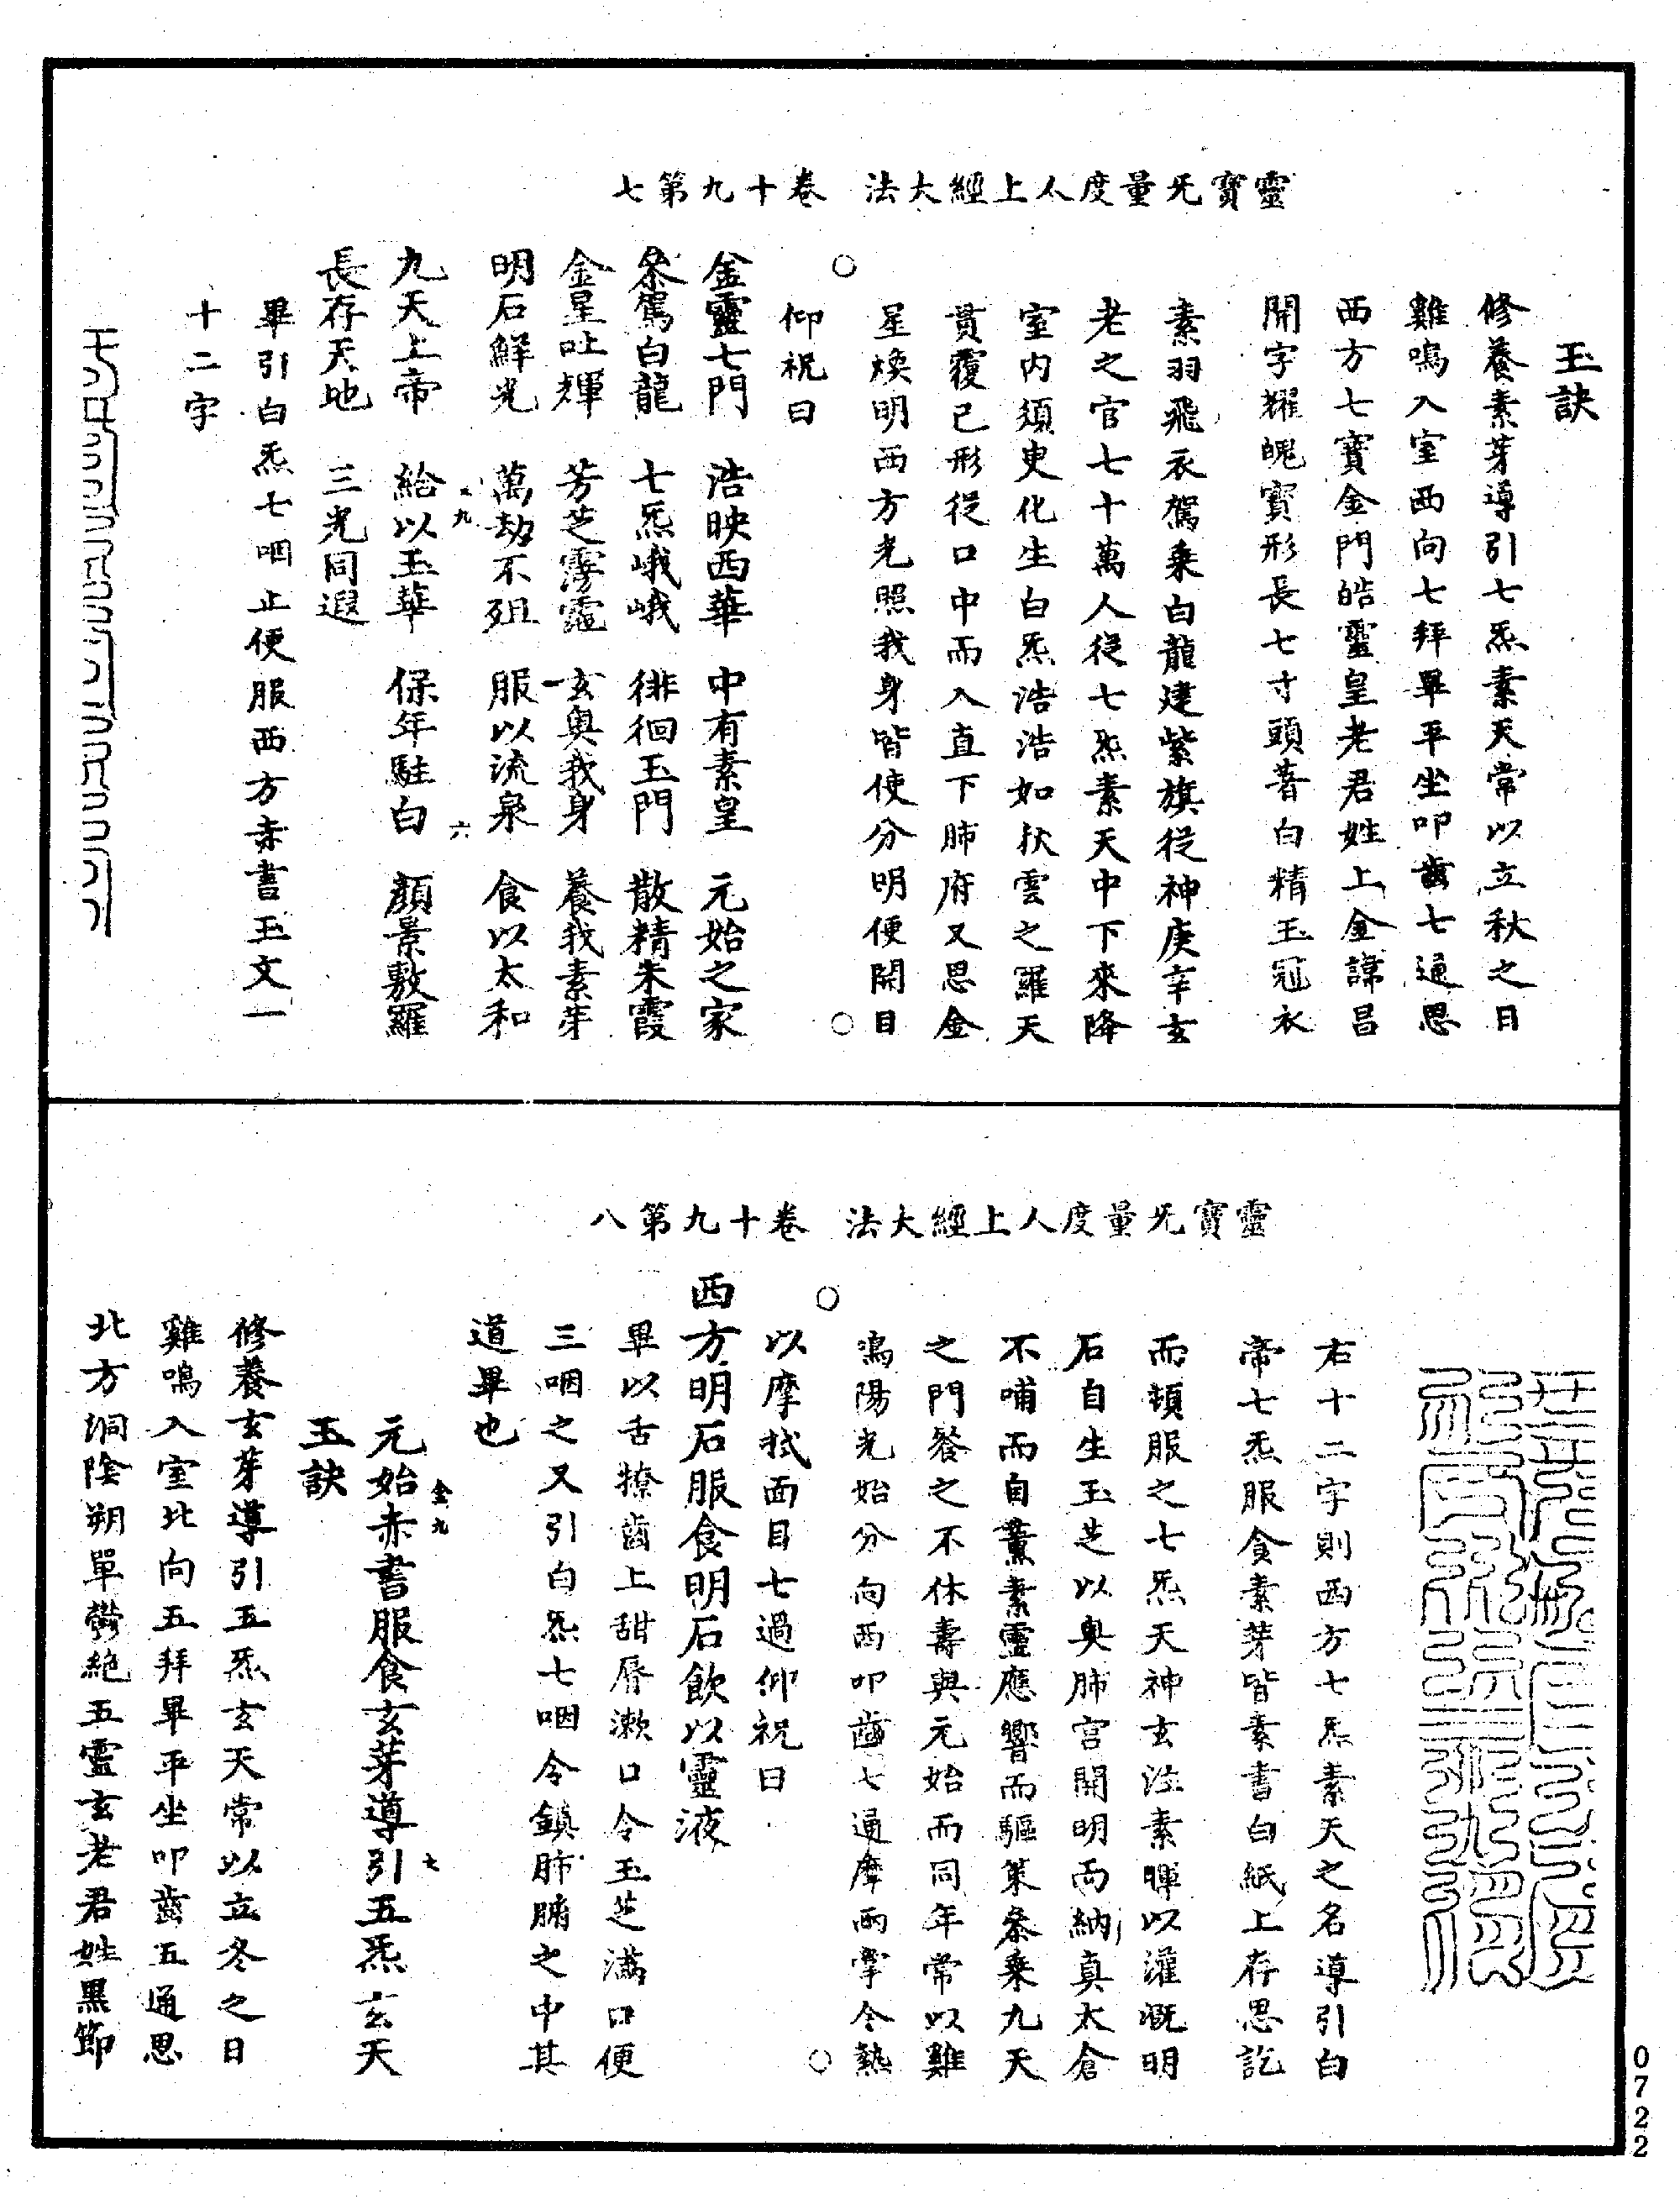 靈寶无量度人上經大法　卷十九第七
玉訣
修養素芽導引七炁素天常以立秋之日
雞鳴入室西向七拜畢平坐叩齒七通思
西方七寶金門皓靈皇老君姓上金諱昌
開字耀魄寶形長七寸頭著白精玉冠衣
素羽飛衣駕乘白龍建紫旗從神庚辛玄
老之官七十萬人從七炁素天中下來降
室內須臾化生白炁浩浩如秋雲之羅天
貫覆己形從口中而入直下肺府又思金
星煥明西方光照我身皆使分明便開目
仰祝曰
金靈七門　浩映西華　中有素皇　元始之家
叅駕白龍　七炁峨峨　徘徊玉門　散精朱霞
金星吐輝　芳芝霶霮　玄奧我身　養我素芽
明石鮮光　萬劫不殂　服以流泉　食以太和
九天上帝　給以玉華　保年駐白　顏景敷羅
長存天地　三光同遐
畢引白炁七咽止便服西方赤書玉文一
十二字
靈寶无量度人上經大法　卷十九第八
右十二字則西方七炁素天之名導引白
帝七炁服食素芽皆素書白紙上存思訖
而頓服之七炁天神玄注素暉以灌溉明
石自生玉芝以奥肺宫開明兩納真太倉
不哺而自薰素靈應響而驅策叅乘九天
之門飱之不休壽與元始而同年常以雞
鳴陽光始分向西叩齒七通摩兩掌令熱
以摩拭面目七過仰祝曰
西方明石服食明石飲以靈液
畢以舌撩齒上甜唇漱口令玉芝滿口便
三咽之又引白炁七咽令鎮肺腑之中其
道畢也
元始赤書服食玄芽導引五炁玄天
玉訣
修養玄芽導引五炁玄天常以立冬之日
雞鳴入室北向五拜畢平坐叩齒五通思
北方洞陰朔單鬱絕五靈玄老君姓黑節
0722